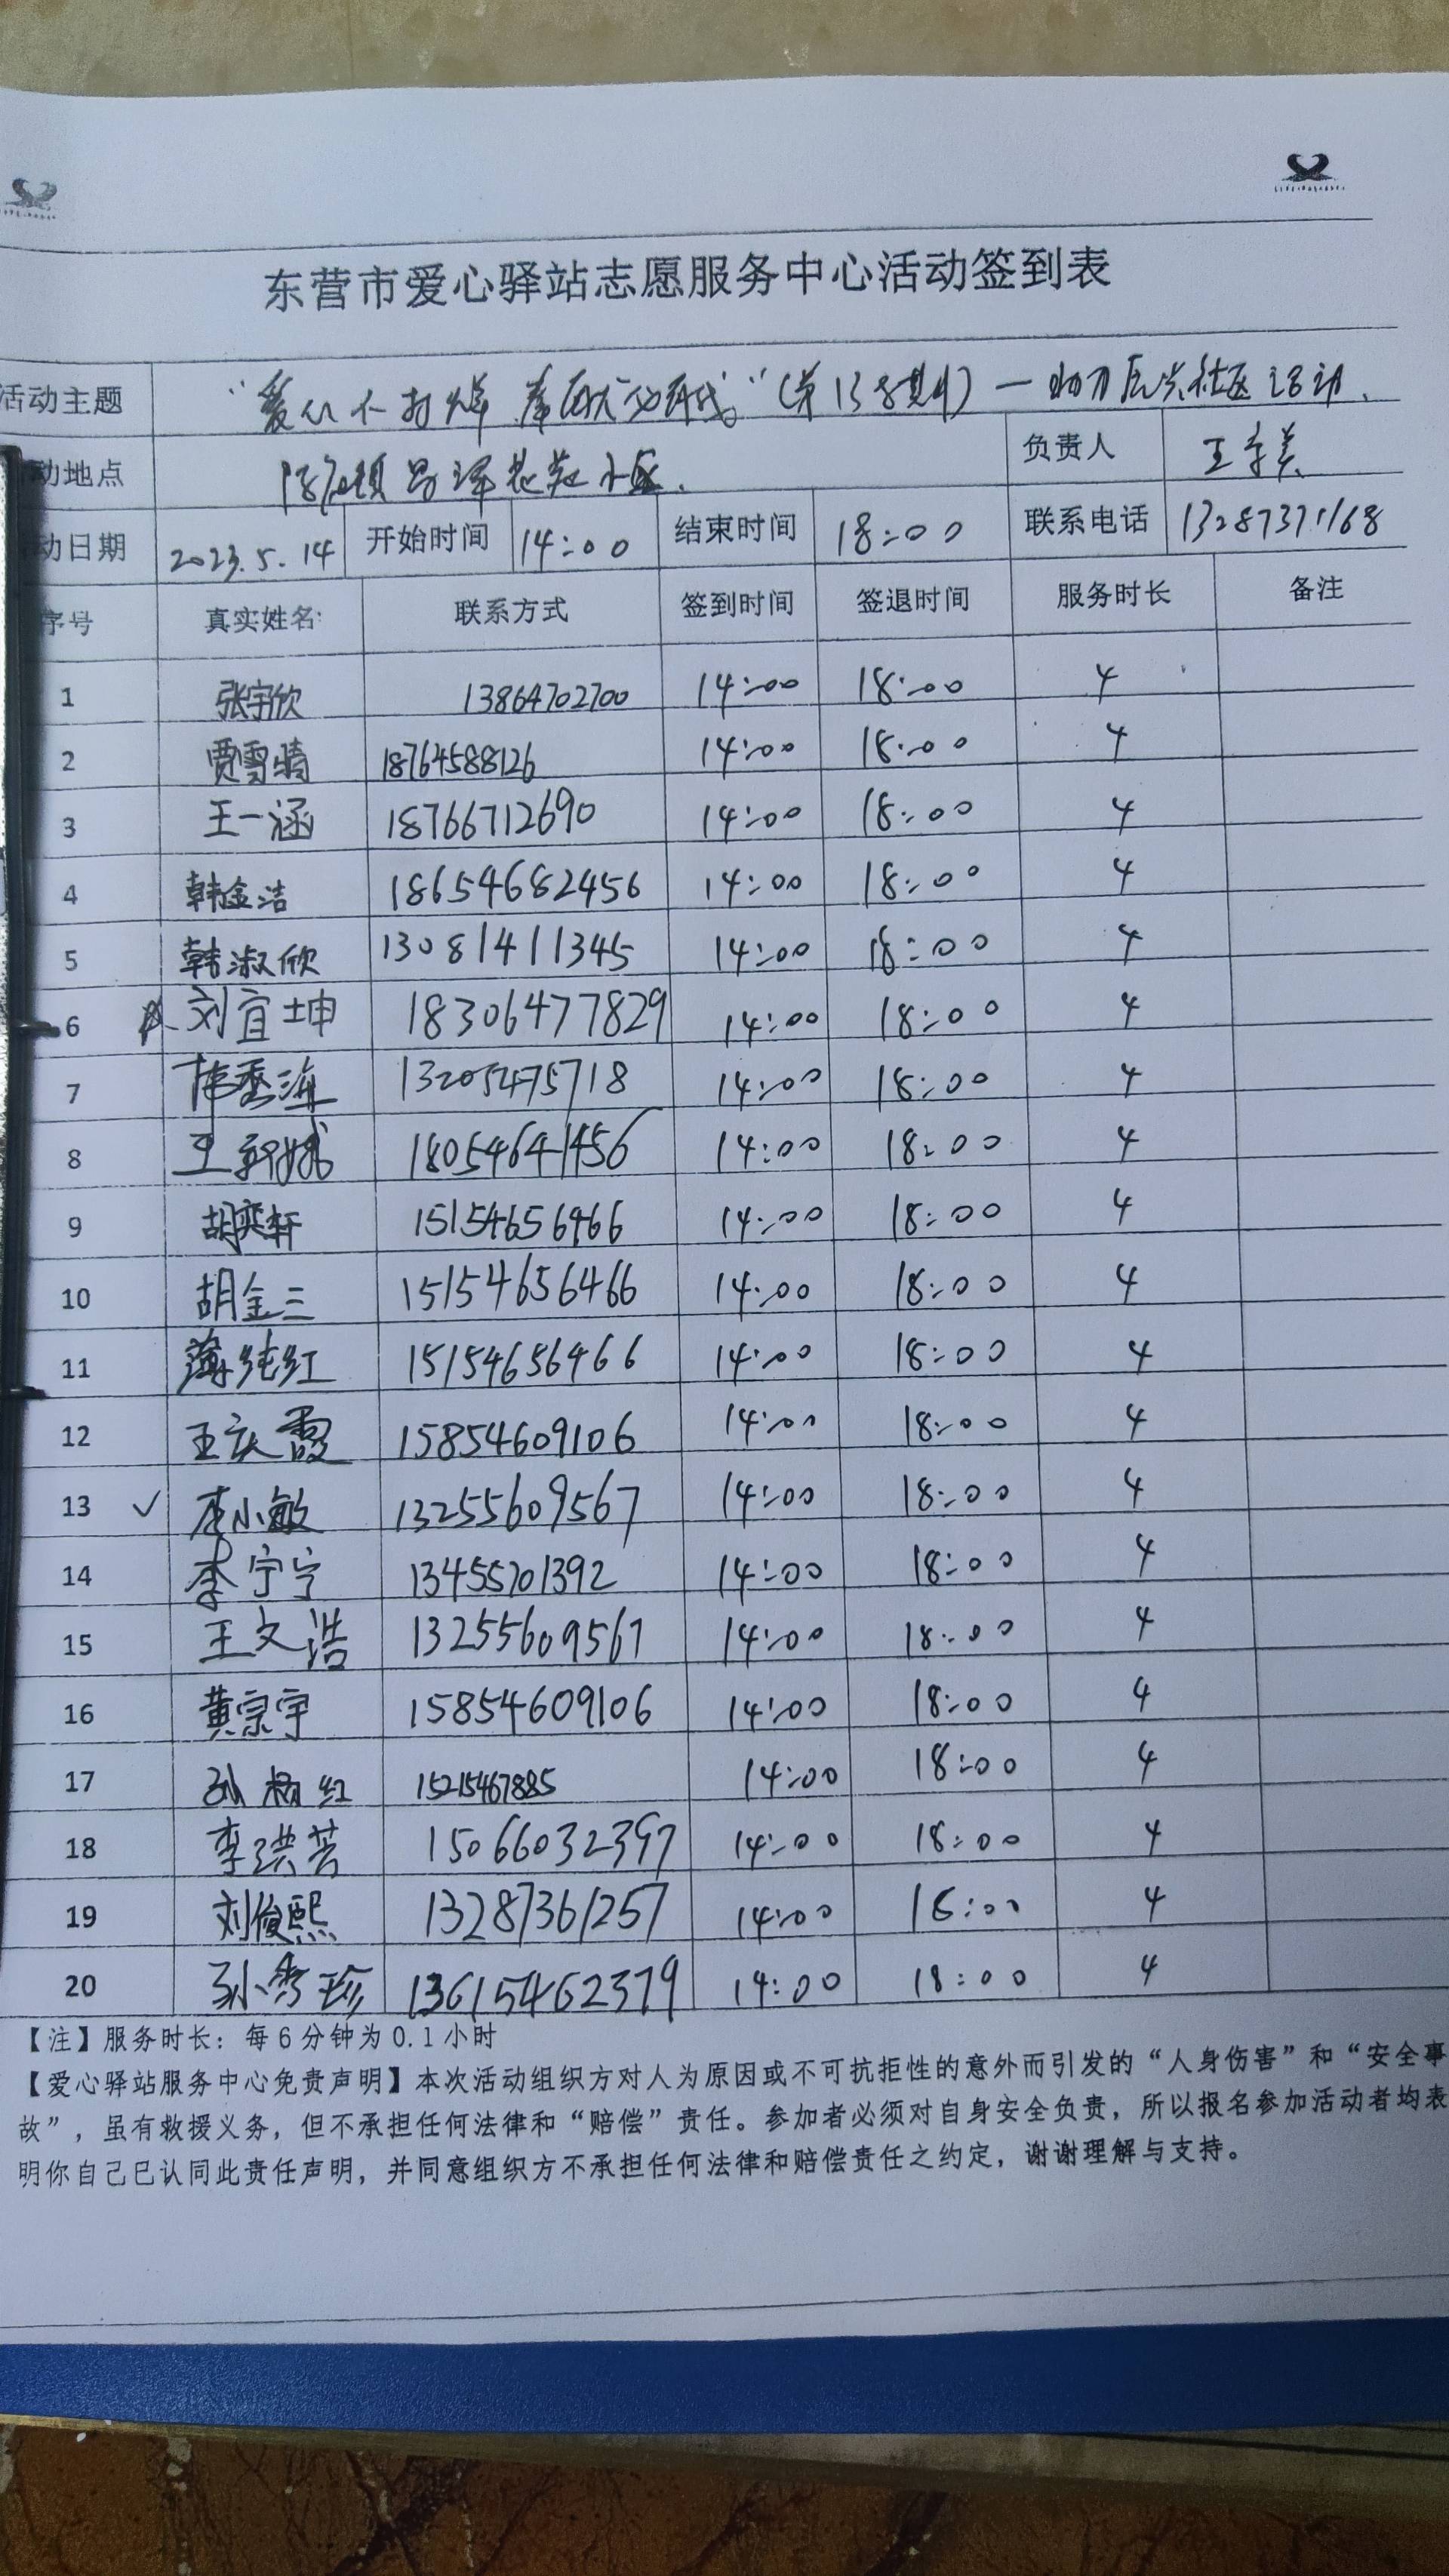 东营市爱心驿站志愿服务中心活动签到表
活动主题 "爱心不打烊 "(第138期)一助力 社区活动.
动地点 小区. 负责人 王 美
动日期 2023.5.14 开始时间 14:00 结束时间 18:00 联系电话 13287371168
序号 真实姓名: 联系方式 签到时间 签退时间 服务时长 备注
1 张宇欣 13864702700 14:00 18:00 4
2 贾雪晴 18764588126 14:00 18:00 4
3 王一涵 18766712690 14:00 18:00 4
4 韩金洁 18654682456 14:00 18:00 4
5 韩淑欣 13081411345 14:00 18:00 4
6 刘宜坤 18306477829 14:00 18:00 4
7 13205475718 14:00 18:00 4
8 王 娥 18054641456 14:00 18:00 4
9 胡奕轩 15154656466 14:00 18:00 4
10 胡金三 15154656466 14:00 18:00 4
11 薄纯红 15154656466 14:00 18:00 4
12 王庆霞 15854609106 14:00 18:00 4
13 ✓ 李小敏 13255609567 14:00 18:00 4
14 李宁宁 13455701392 14:00 18:00 4
15 王文浩 13255609567 14:00 18:00 4
16 黄宗宇 15854609106 14:00 18:00 4
17 孙 红 15215467885 14:00 18:00 4
18 李洪芸 15066032397 14:00 18:00 4
19 刘俊熙 13287361257 14:00 18:00 4
20 孙秀珍 13615462379 14:00 18:00 4
【注】服务时长：每6分钟为0.1小时
【爱心驿站服务中心免责声明】本次活动组织方对人为原因或不可抗拒性的意外而引发的“人身伤害”和“安全事
故”，虽有救援义务，但不承担任何法律和“赔偿”责任。参加者必须对自身安全负责，所以报名参加活动者均表
明你自己已认同此责任声明，并同意组织方不承担任何法律和赔偿责任之约定，谢谢理解与支持。